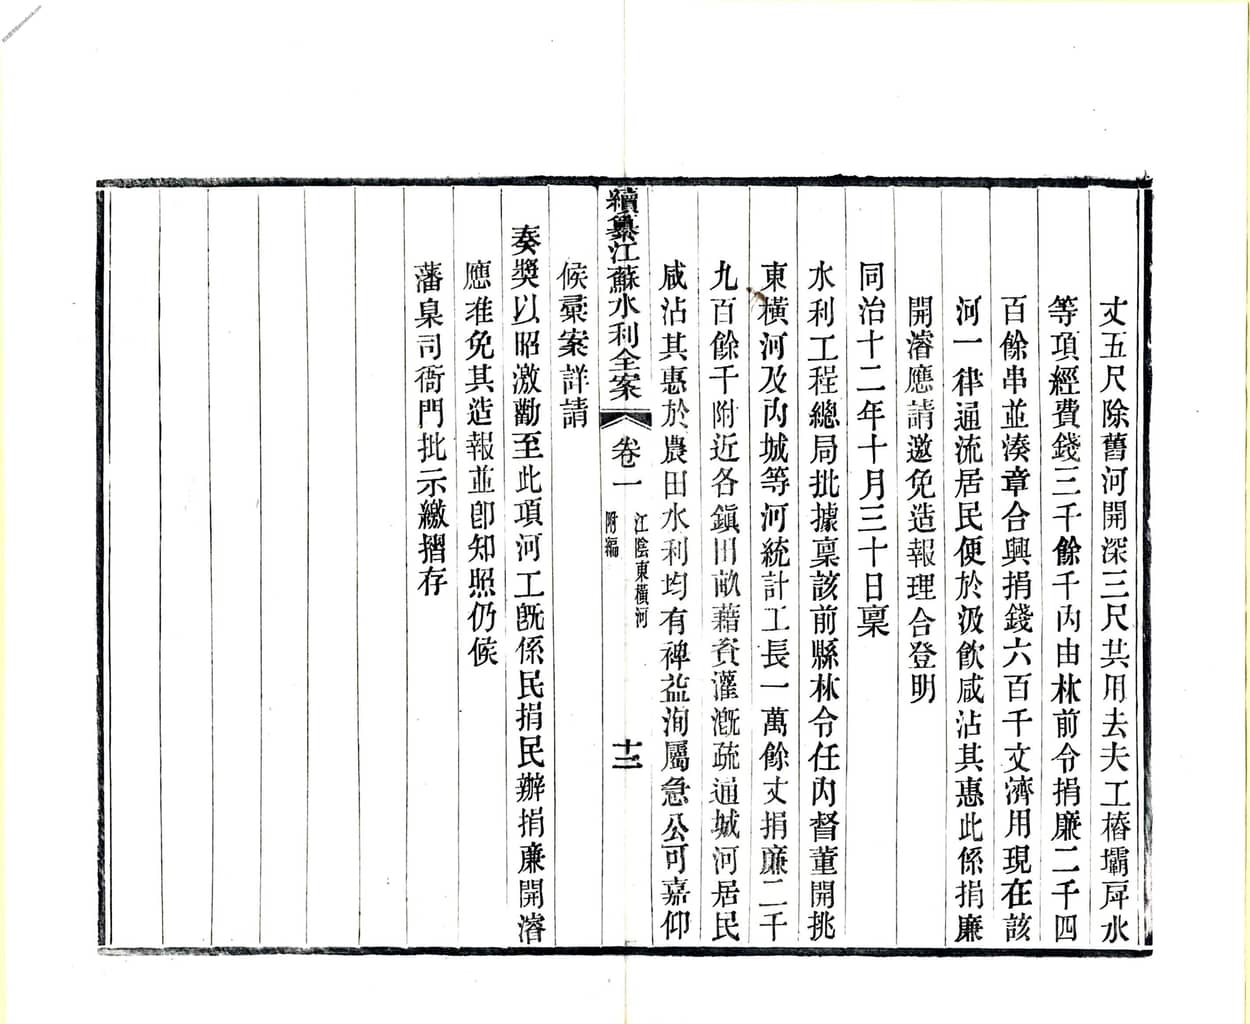 丈五尺除舊河開深三尺共用去夫工樁壩戽水
等項經費錢三千餘千內由林前令捐廉二千四
百餘串並湊章合興捐錢六百千文濟用現在該
河一律通流居民便於汲飲咸沾其惠此係捐廉
開濬應請邀免造報理合登明
同治十二年十月三十日稟
水利工程總局批據稟該前縣林令任內督董開挑
東橫河及內城等河統計工長一萬餘丈捐廉二千
九百餘千附近各鎮田畝藉資灌漑疏通城河居民
咸沾其惠於農田水利均有裨益洵屬急公可嘉仰
續纂江蘇水利全案 卷一 江陰東橫河 附編 十二
候彙案詳請
奏奬以昭激勸至此項河工旣係民捐民辦捐廉開濬
應准免其造報並卽知照仍候
藩臬司衙門批示繳摺存